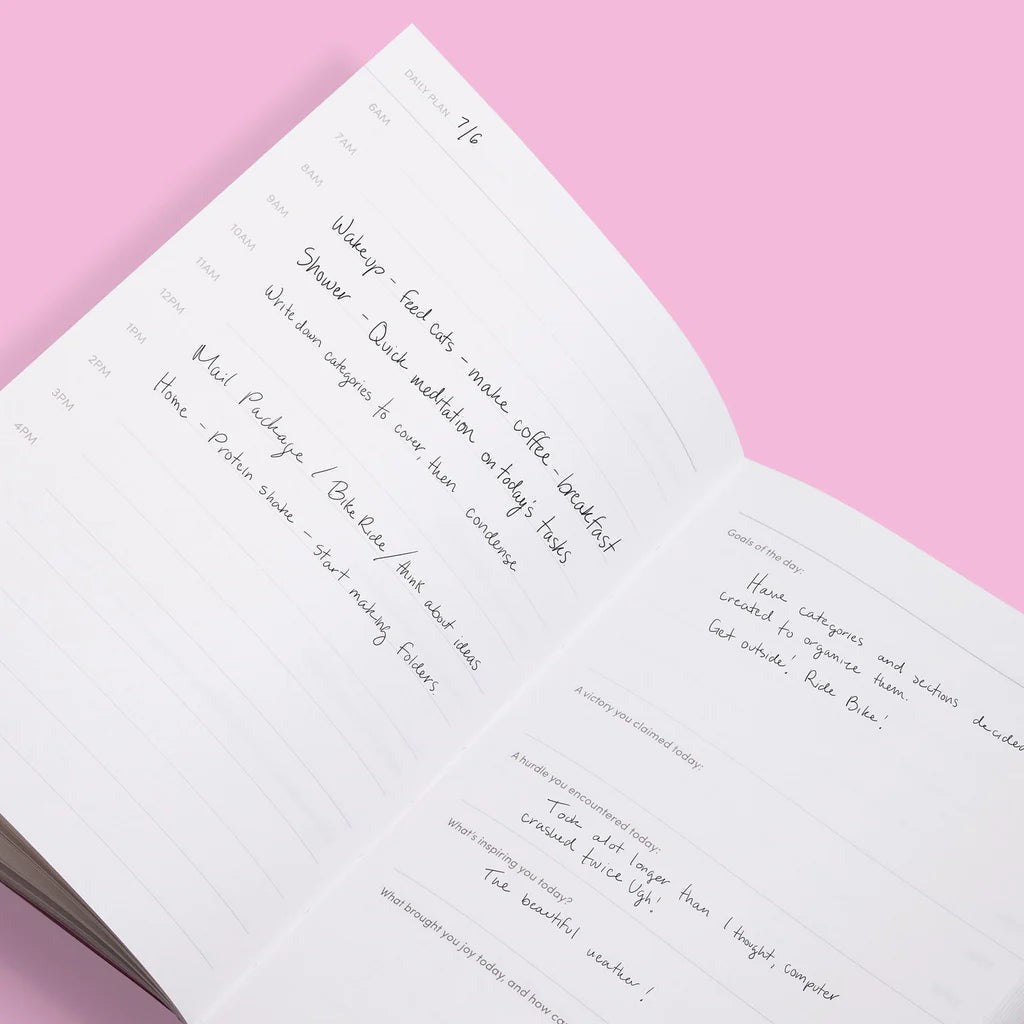 DAILY PLAN 7/6
6AM
7AM
8AM
9AM
10AM
11AM
12PM
1PM
2PM
3PM
4PM
Wakeup - Feed cats - make coffee - breakfast
Shower - Quick meditation on today's tasks
Write down categories to cover, then condense
Mail Package / Bike Ride / think about ideas
Home - Protein shake - start making folders
Goals of the day:
Have categories and sections decided
created to organize them.
Get outside! Ride Bike!
A victory you claimed today:
A hurdle you encountered today:
Took alot longer than I thought, computer
crashed twice Ugh!
What's inspiring you today?
The beautiful weather!
What brought you joy today, and how